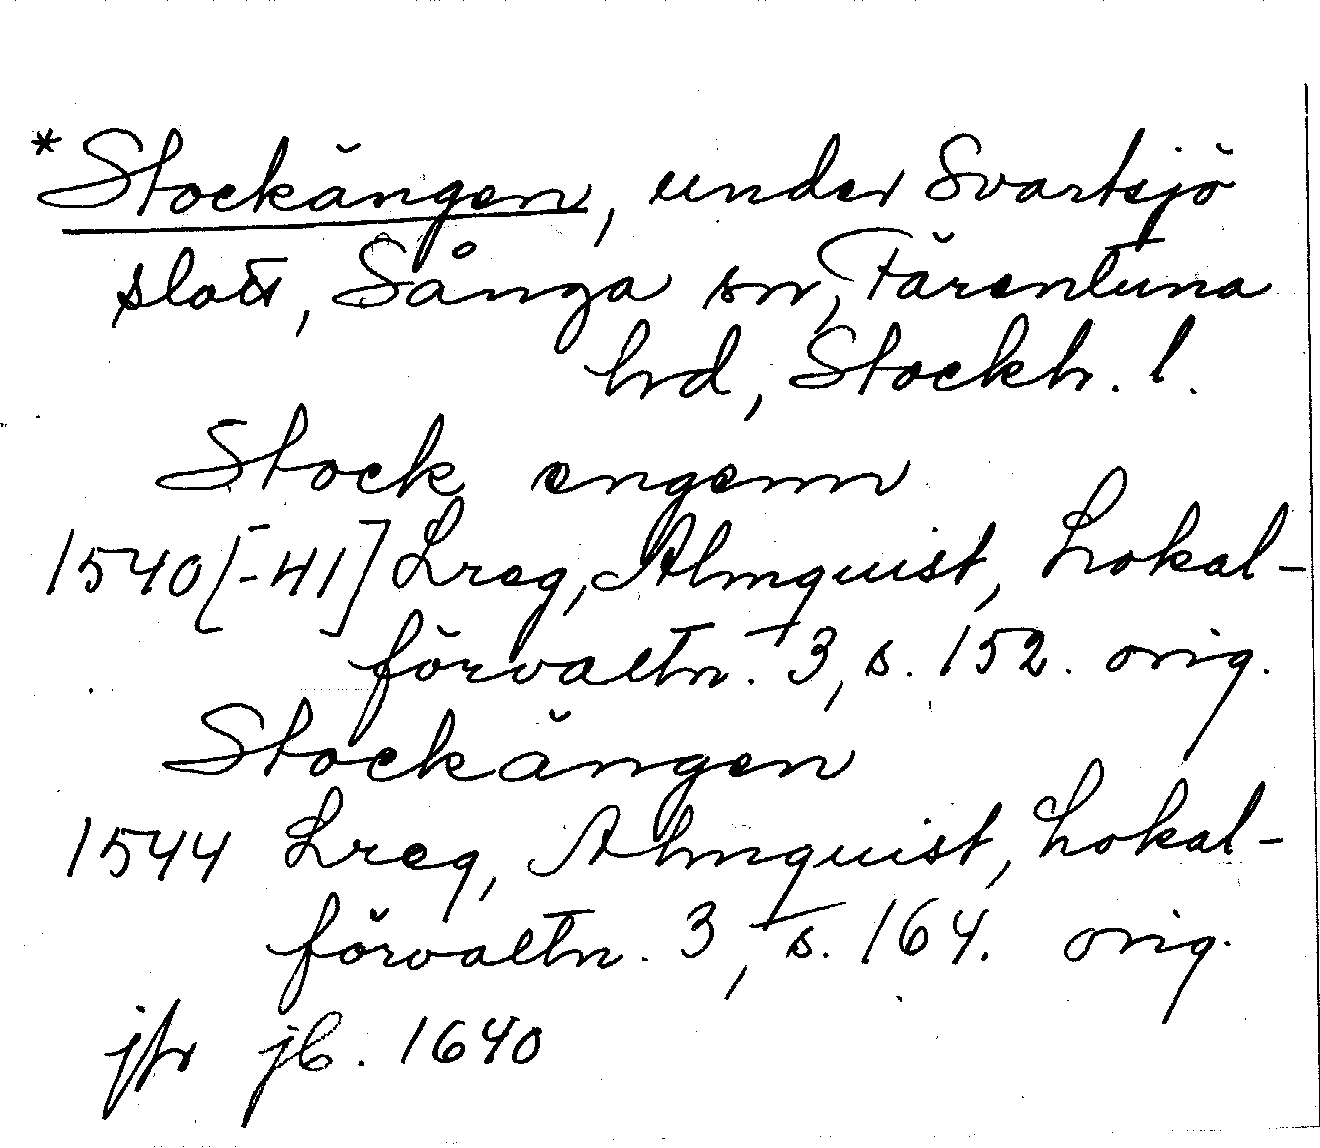 *Stockängen, under Svartsjö
slott, Sånga sn, Färentuna
hd, Stockh. l.
Stock engenn
1540[-41] Lreg, Almquist, Lokal-
förvaltn. 3, s. 152. orig.
Stockängen
1544 Lreg, Almquist, Lokal-
förvaltn. 3, s. 164. orig.
jfr jb. 1640